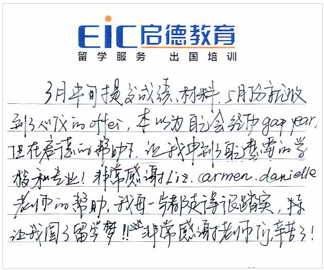 EIC启德教育
留学服务 出国培训
3月中旬提交成绩、材料，5月份就收
到了心仪的offer，本以为自己会经历gap year，
但在启德的帮助下，让我申到了自己想要的学
校和专业！非常感谢Liz. carmen. danielle
老师的帮助，我每一步都走得很踏实，
让我圆了留学梦!!! 非常感谢老师们，辛苦了！